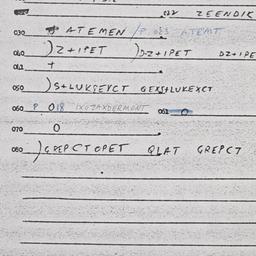 032 ZEENDIK
030 ATEMEN /P 033 ATEMT
040 )Z+IPET )DZ+IPET DZ+IPE
041 +
050 )S+LUKSEYCT GEXS+LUKEXCT
060 P 018 061 0
070 0
080 )GREPCTOPET QLAT GREPCT